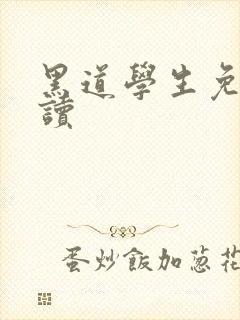 黑道學生免
讀
蛋炒飯加蔥花